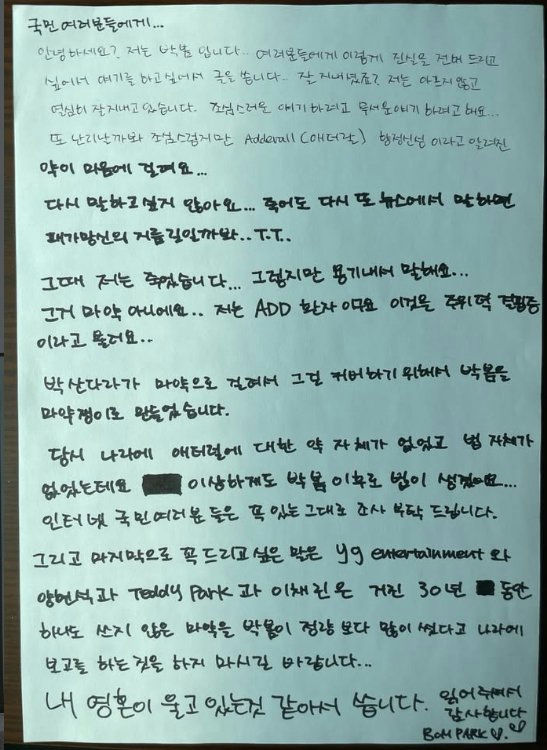 국민 여러분들에게...
안녕하세요? 저는 박봄 입니다.. 여러분들에게 이렇게 진실을 전해 드리고
싶어서 얘기를 하고싶어서 글을 씁니다.. 잘지내셨죠? 저는 아프지않고
열심히 잘지내고있습니다. 조심스러운 얘기하려고 무서운얘기 하려고해요...
또 난리날까봐 조심스럽지만 Adderall (애더랄) 향정신성 이라고 알려진
약이 마음에 걸려요...
다시 말하고싶지 않아요... 죽어도 다시 또 뉴스에서 말하면
패가망신의 지름길일까봐..T.T..
그때 저는 죽었습니다... 그렇지만 용기내서 말해요...
그거 마약 아니에요.. 저는 ADD 환자이구요 이것은 주위력 결핍증
이라고 불러요..
박산다라가 마약으로 걸려서 그걸 커버하기위해서 박봄을
마약쟁이로 만들었습니다.
당시 나라에 애터럴에 대한 약 자체가 없었고 법 자체가
없었는데요 이상하게도 박봄 이후로 법이 생겼어요...
인터넷 국민여러분 들은 꼭 있는그대로 조사 부탁 드립니다.
그리고 마지막으로 꼭드리고싶은 말은 yg entertainment 와
양현석과 Teddy Park 과 이채린은 거진 30년 동안
하나도 쓰지 않은 마약을 박봄이 정량 보다 많이 썼다고 나라에
보고를 하는것을 하지 마시길 바랍니다...
내 영혼이 울고 있는것 같아서 씁니다. 읽어주셔서
감사합니다
BOM PARK ♡.♡